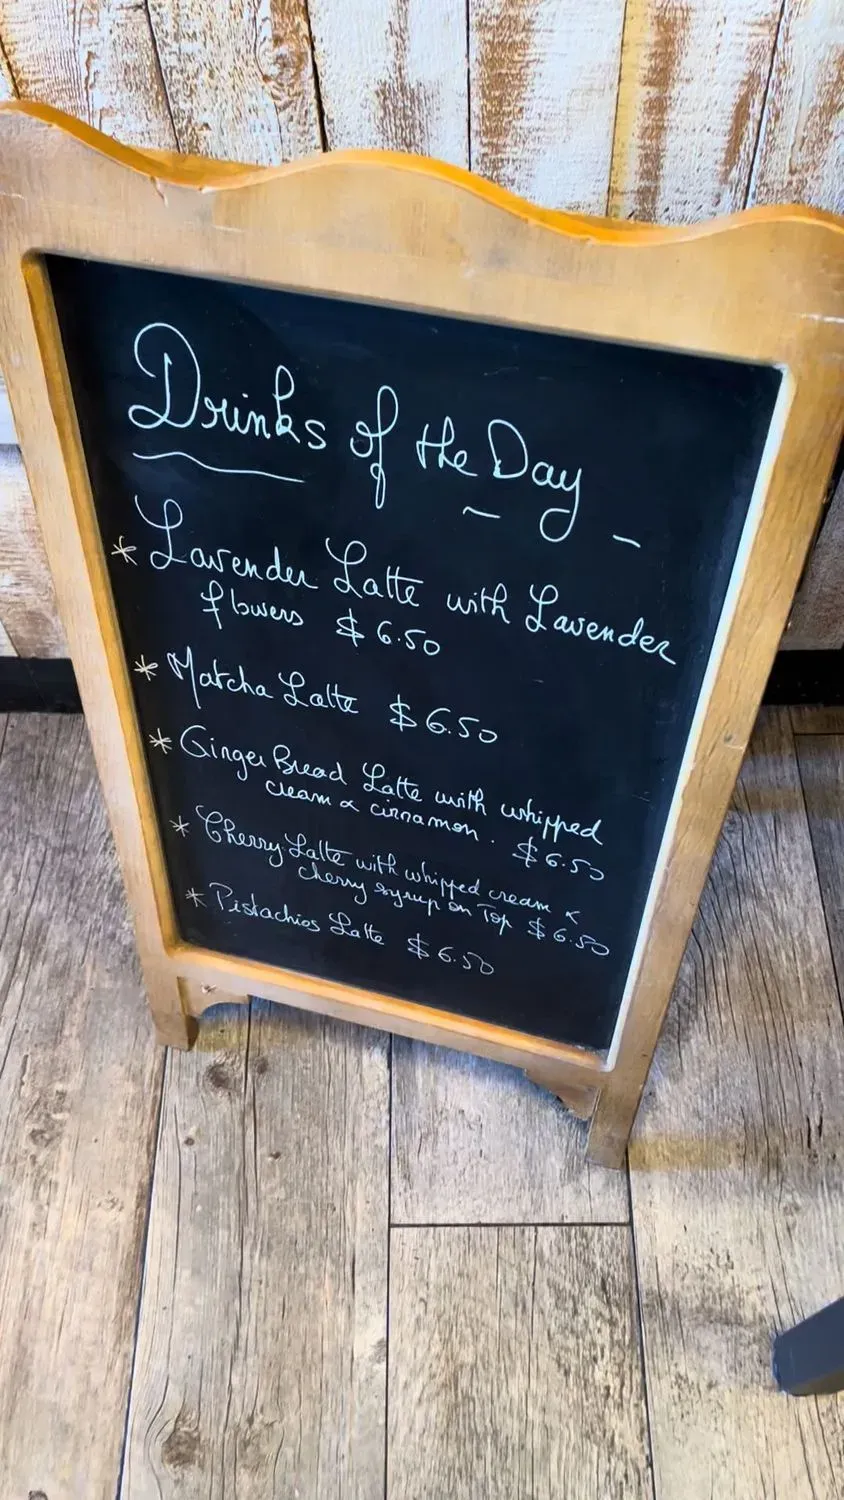 Drinks of the Day
* Lavender Latte with Lavender
flowers $6.50
* Matcha Latte $6.50
* GingerBread Latte with whipped
cream & cinnamon. $6.50
* Cherry Latte with whipped cream &
cherry syrup on Top $6.50
* Pistachios Latte $6.50